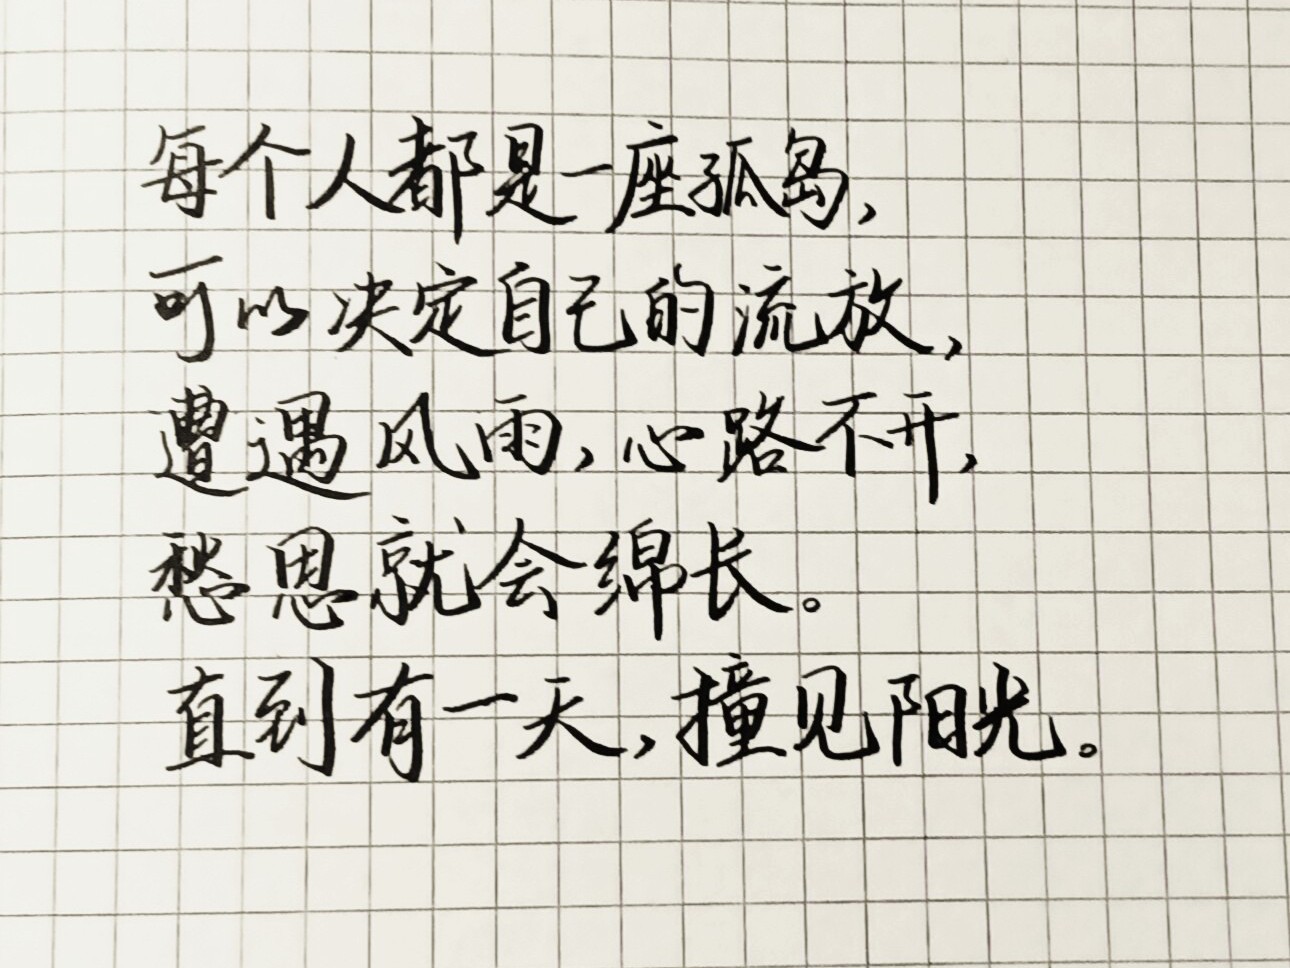 每个人都是一座孤岛，
可以决定自己的流放，
遭遇风雨，心路不开，
愁思就会绵长。
直到有一天，撞见阳光。